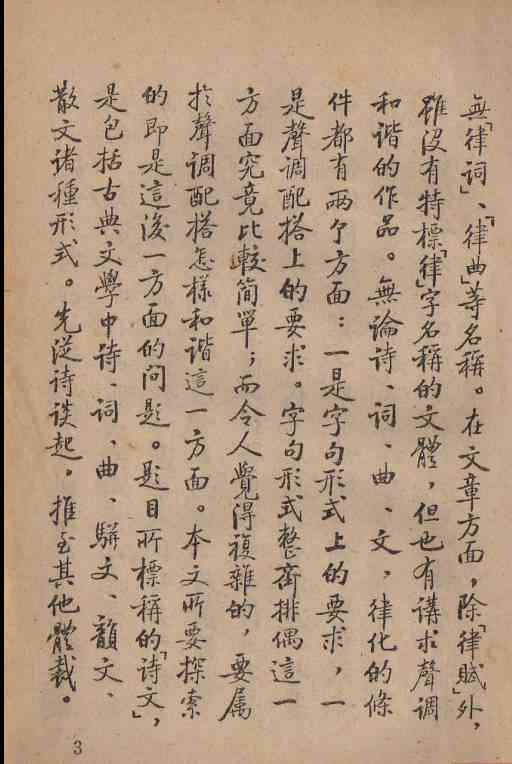 無「律詞」、「律曲」等名稱。在文章方面，除「律賦」外，
雖没有特標「律」字名稱的文體，但也有講求聲調
和谐的作品。無論诗、词、曲、文，律化的條
件都有兩个方面：一是字句形式上的要求，一
是聲調配搭上的要求。字句形式整齊排偶這一
方面究竟比較簡單；而令人覺得複雜的，要属
於聲調配搭怎樣和谐這一方面。本文所要探索
的即是這後一方面的问题。题目所標稱的「诗文」，
是包括古典文學中诗、词、曲、駢文、韻文、
散文诸種形式。先從诗谈起，推至其他體裁。
3